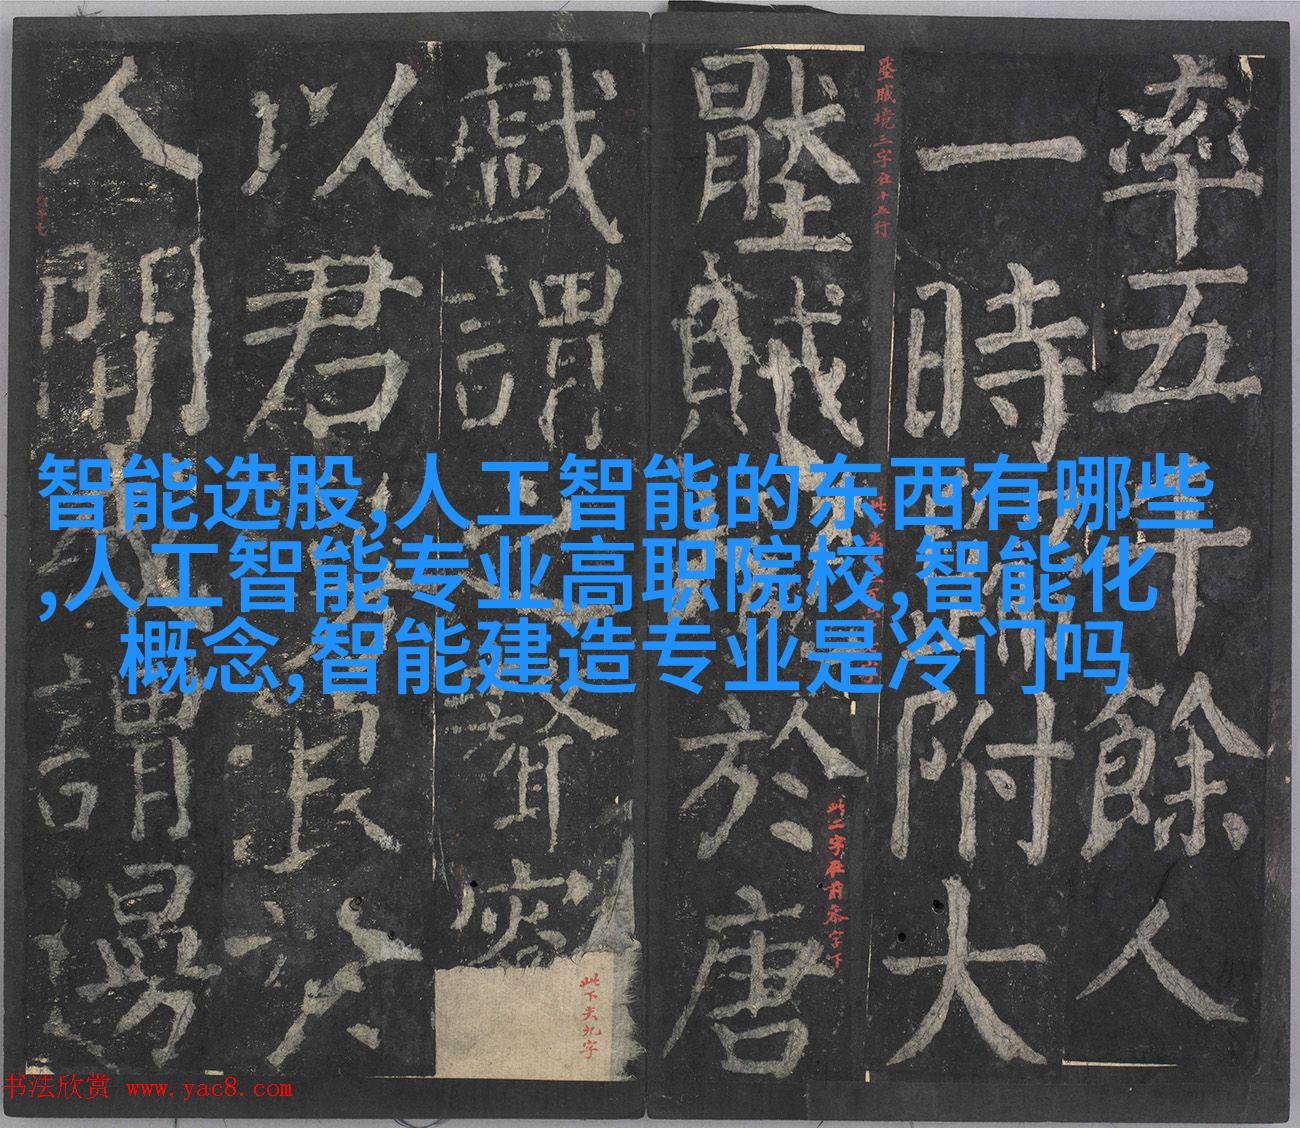 率五千餘人
一時歸附大
壓賊境於唐
戲謂之聱客
以君浪於
人間或謂漫
壓賊境三字在十五行
此二字在前聱字下
此下失九字
智能选股,人工智能的东西有哪些
,人工智能专业高职院校,智能化
概念,智能建造专业是冷门吗
书法欣赏 www.yac8.com